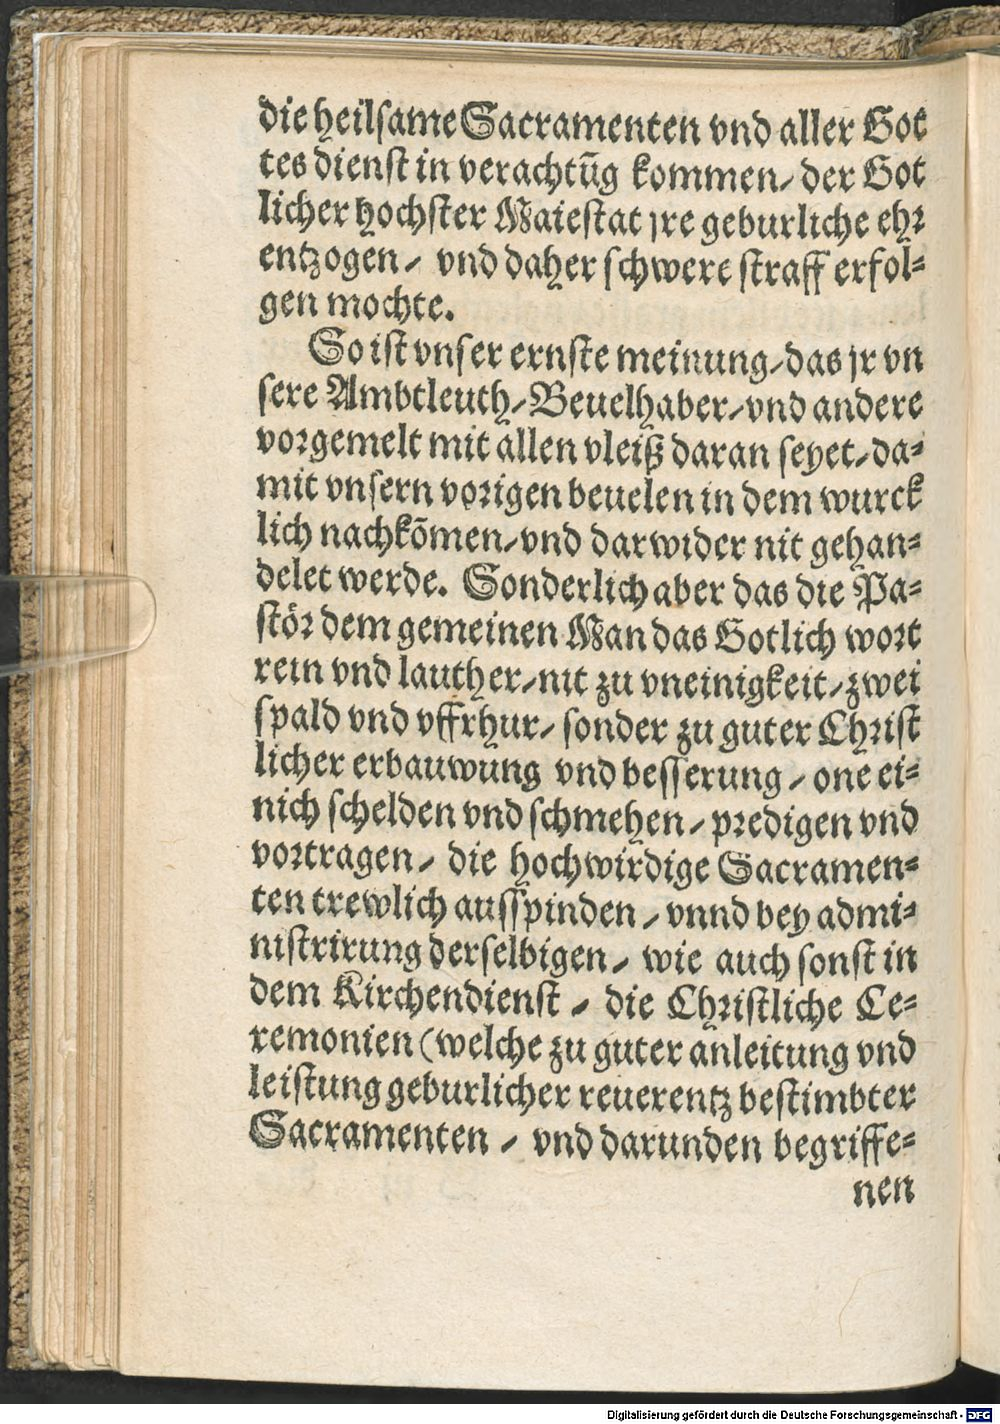 die heilsame Sacramenten vnd aller Got
tes dienst in verachtūg kommen, der Got
licher hochster Maiestat jre geburliche ehr
entzogen, vnd daher schwere straff erfol-
gen mochte.
So ist vnser ernste meinung, das jr vn
sere Ambtleuth, Beuelhaber, vnd andere
vorgemelt mit allen vleiß daran seyet, da-
mit vnsern vorigen beuelen in dem wurck
lich nachkōmen, vnd darwider nit gehan-
delet werde. Sonderlich aber das die Pa-
stör dem gemeinen Man das Gotlich wort
rein vnd lauther, nit zu vneinigkeit, zwei
spald vnd vffrhur, sonder zu guter Christ
licher erbauwung vnd besserung, one ei-
nich schelden vnd schmehen, predigen vnd
vortragen, die hochwirdige Sacramen-
ten trewlich ausspinden, vnnd bey admi-
nistrirung derselbigen, wie auch sonst in
dem Kirchendienst, die Christliche Ce-
remonien (welche zu guter anleitung vnd
leistung geburlicher reuerentz bestimbter
Sacramenten, vnd darunden begriffe-
nen
Digitalisierung gefördert durch die Deutsche Forschungsgemeinschaft - DFG